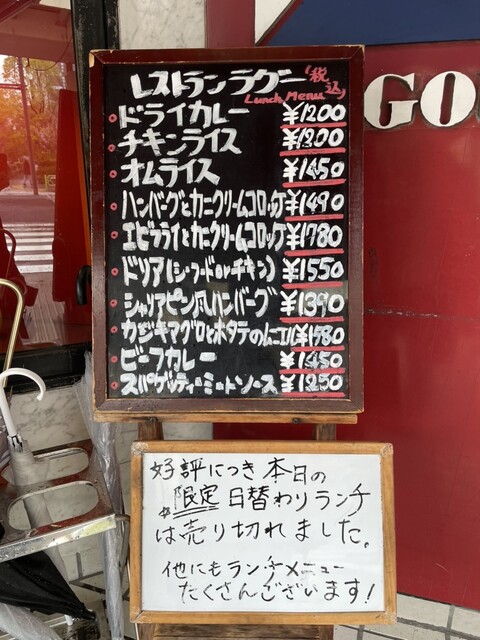 レストランラグー「税込」
Lunch Menu
ドライカレー ¥1200
チキンライス ¥1200
オムライス ¥1450
ハンバーグとカニクリームコロッケ ¥1490
エビフライとカニクリームコロッケ ¥1780
ドリア(シーフードorチキン) ¥1550
シャリアピン風ハンバーグ ¥1390
カジキマグロとホタテのムニエル ¥1580
ビーフカレー ¥1450
スパゲッティーミートソース ¥1250
GO
好評につき本日の
限定日替わりランチ
は売り切れました。
他にもランチメニュー
たくさんございます!